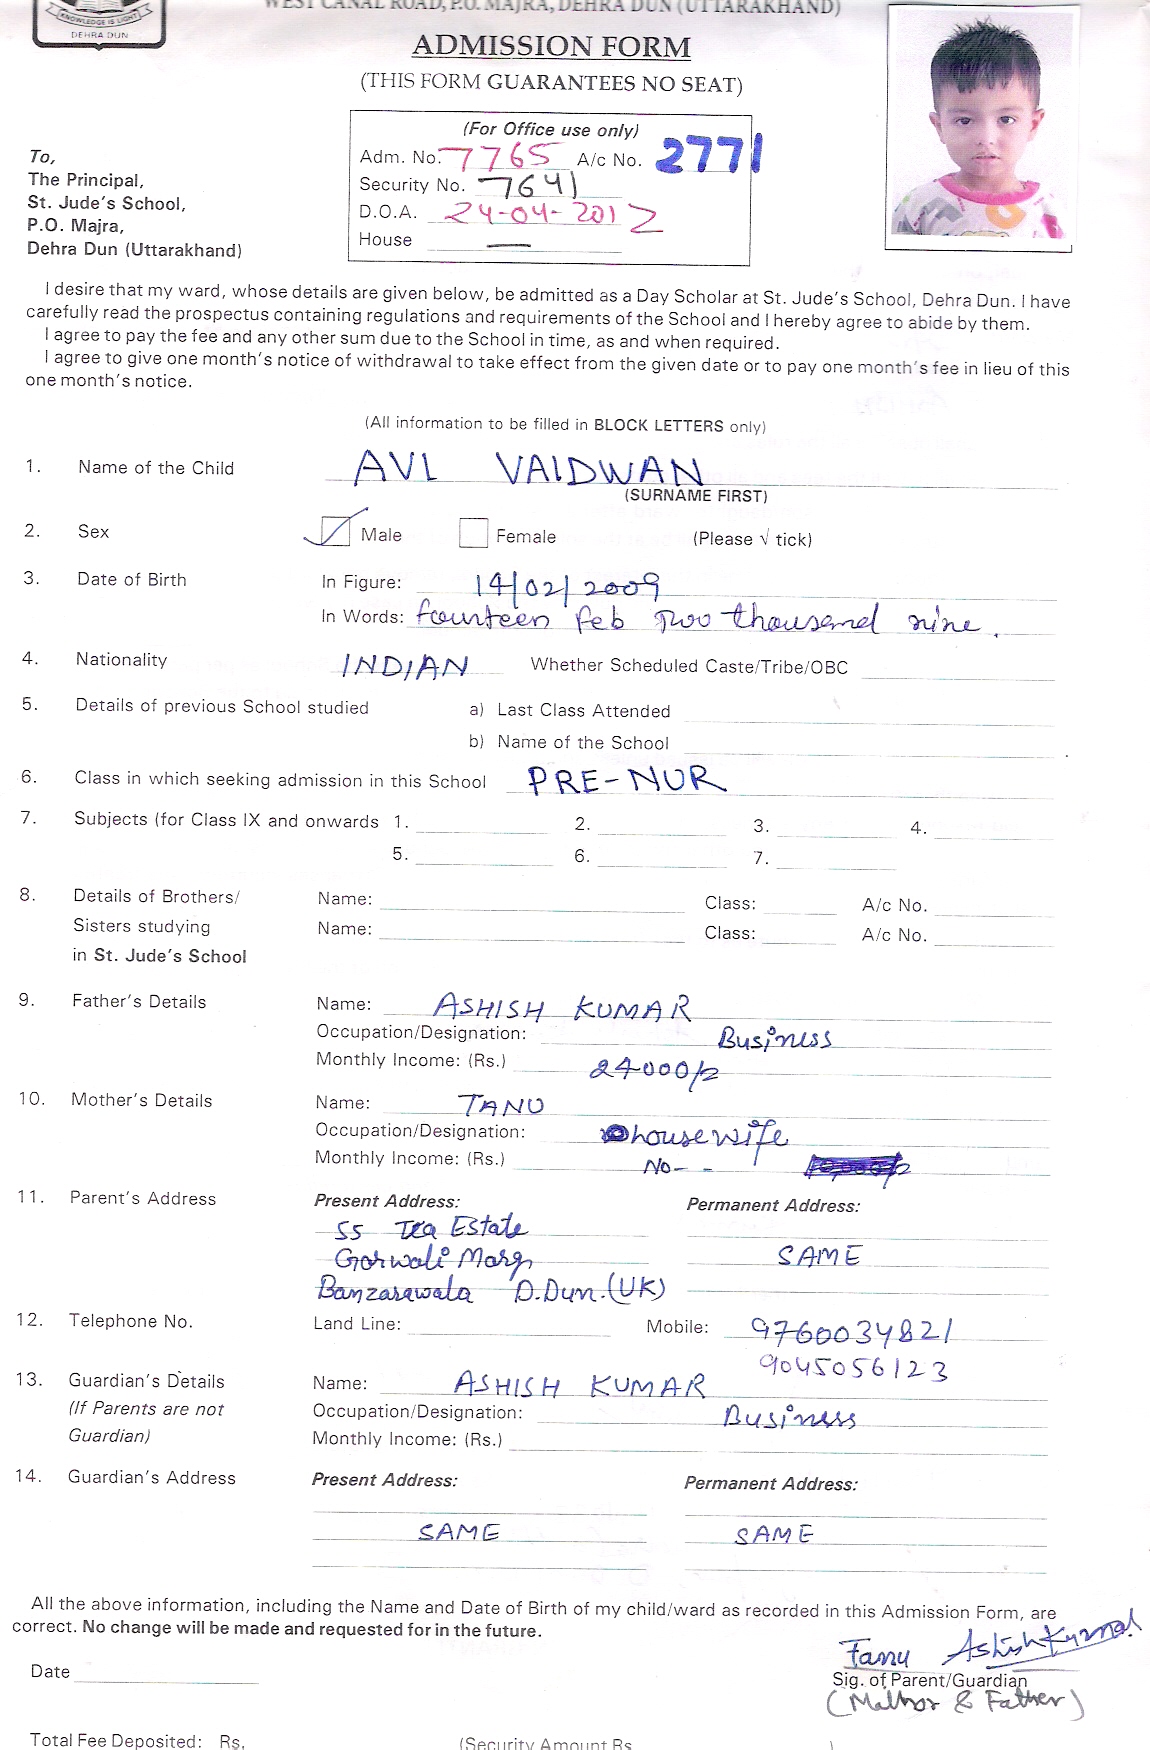 KNOWLEDGE IS LIGHT
DEHRA DUN
WEST CANAL ROAD, P.O. MAJRA, DEHRA DUN (UTTARAKHAND)
ADMISSION FORM
(THIS FORM GUARANTEES NO SEAT)
(For Office use only)
Adm. No. 7765 A/c No. 2771
Security No. 7641
D.O.A. 24-04-2012
House —
To,
The Principal,
St. Jude's School,
P.O. Majra,
Dehra Dun (Uttarakhand)
I desire that my ward, whose details are given below, be admitted as a Day Scholar at St. Jude's School, Dehra Dun. I have
carefully read the prospectus containing regulations and requirements of the School and I hereby agree to abide by them.
I agree to pay the fee and any other sum due to the School in time, as and when required.
I agree to give one month's notice of withdrawal to take effect from the given date or to pay one month's fee in lieu of this
one month's notice.
(All information to be filled in BLOCK LETTERS only)
1. Name of the Child AVI VAIDWAN
(SURNAME FIRST)
2. Sex Male Female (Please √ tick)
3. Date of Birth In Figure: 14/02/2009
In Words: fourteen feb Two thousand nine.
4. Nationality INDIAN Whether Scheduled Caste/Tribe/OBC
5. Details of previous School studied a) Last Class Attended
b) Name of the School
6. Class in which seeking admission in this School PRE-NUR
7. Subjects (for Class IX and onwards 1. 2. 3. 4.
5. 6. 7.
8. Details of Brothers/ Name: Class: A/c No.
Sisters studying Name: Class: A/c No.
in St. Jude's School
9. Father's Details Name: ASHISH KUMAR
Occupation/Designation: Business
Monthly Income: (Rs.) 24000/-
10. Mother's Details Name: TANU
Occupation/Designation: house wife
Monthly Income: (Rs.) No - -
11. Parent's Address Present Address: Permanent Address:
55 Tea Estate
Gorwali Marg SAME
Banzarawala D.Dun.(UK)
12. Telephone No. Land Line: Mobile: 9760034821
9045056123
13. Guardian's Details Name: ASHISH KUMAR
(If Parents are not Occupation/Designation: Business
Guardian) Monthly Income: (Rs.)
14. Guardian's Address Present Address: Permanent Address:
SAME SAME
All the above information, including the Name and Date of Birth of my child/ward as recorded in this Admission Form, are
correct. No change will be made and requested for in the future.
Tanu Ashish Kumar
Date Sig. of Parent/Guardian
(Mathor & Father)
Total Fee Deposited: Rs. (Security Amount Rs. )